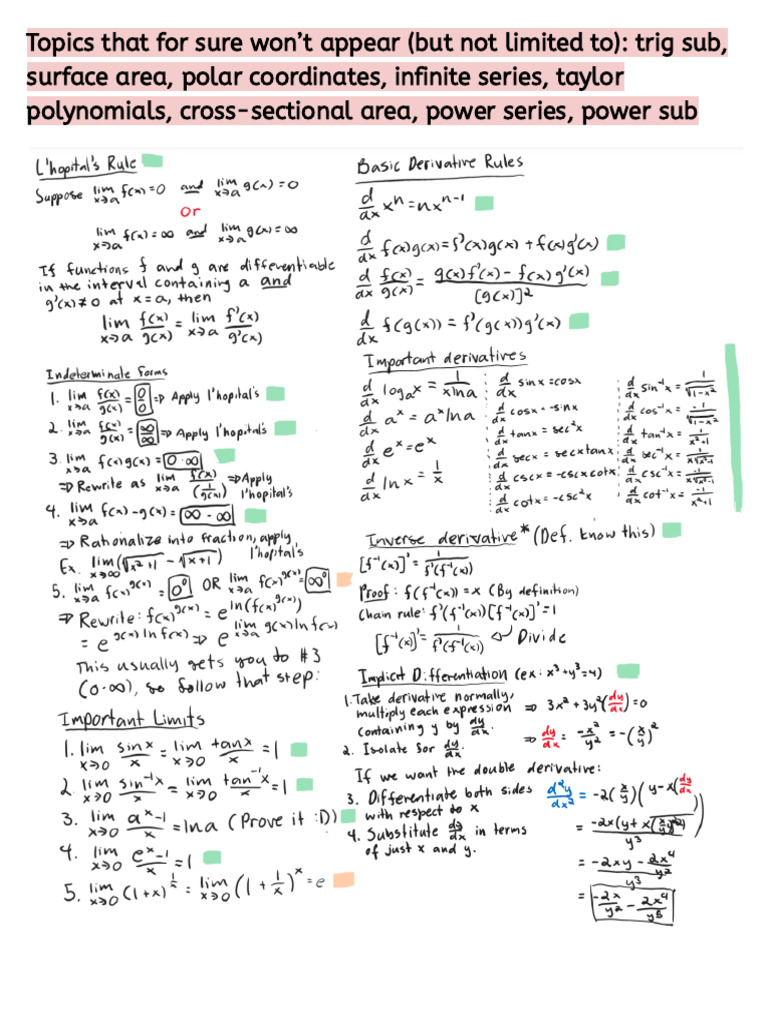 Topics that for sure won't appear (but not limited to): trig sub,
surface area, polar coordinates, infinite series, taylor
polynomials, cross-sectional area, power series, power sub
L'hopital's Rule
Suppose lim x→a f(x)=0 and lim x→a g(x)=0
or
lim x→a f(x)=∞ and lim x→a g(x)=∞
If functions f and g are differentiable
in the interval containing a and
g'(x)≠0 at x=a, then
lim x→a f(x)/g(x) = lim x→a f'(x)/g'(x)
Indeterminate Forms
1. lim x→a f(x)/g(x) = 0/0 ⇒ Apply l'hopital's
2. lim x→a f(x)/g(x) = ∞/∞ ⇒ Apply l'hopital's
3. lim x→a f(x)g(x) = 0·∞
⇒ Rewrite as lim x→a f(x)/(1/g(x)) ⇒ Apply l'hopital's
4. lim x→a f(x)-g(x) = ∞-∞
⇒ Rationalize into fraction, apply l'hopital's
Ex. lim x→∞ (√(x²+1) - √(x+1))
5. lim x→a f(x)^g(x) = 0⁰ OR lim x→a f(x)^g(x) = ∞⁰
⇒ Rewrite: f(x)^g(x) = e^ln(f(x)^g(x))
= e^g(x)lnf(x) ⇒ e^lim x→a g(x)lnf(x)
This usually gets you to #3
(0·∞), so follow that step:
Important Limits
1. lim x→0 sinx/x = lim x→0 tanx/x = 1
2. lim x→0 sin⁻¹x/x = lim x→0 tan⁻¹x/x = 1
3. lim x→0 (aˣ-1)/x = lna (Prove it :D)
4. lim x→0 (eˣ-1)/x = 1
5. lim x→0 (1+x)^(1/x) = lim x→0 (1+1/x)^x = e
Basic Derivative Rules
d/dx xⁿ = nxⁿ⁻¹
d/dx f(x)g(x) = f'(x)g(x) + f(x)g'(x)
d/dx f(x)/g(x) = (g(x)f'(x) - f(x)g'(x))/[g(x)]²
d/dx f(g(x)) = f'(g(x))g'(x)
Important derivatives
d/dx logₐx = 1/(xlna)
d/dx aˣ = aˣlna
d/dx eˣ = eˣ
d/dx lnx = 1/x
d/dx sinx = cosx
d/dx cosx = -sinx
d/dx tanx = sec²x
d/dx secx = secxtanx
d/dx cscx = -cscxcotx
d/dx cotx = -csc²x
d/dx sin⁻¹x = 1/√(1-x²)
d/dx cos⁻¹x = -1/√(1-x²)
d/dx tan⁻¹x = 1/(x²+1)
d/dx sec⁻¹x = 1/(x√(x²-1))
d/dx csc⁻¹x = -1/(x√(x²-1))
d/dx cot⁻¹x = -1/(x²+1)
Inverse derivative* (Def. know this)
[f⁻¹(x)]' = 1/f'(f⁻¹(x))
Proof: f(f⁻¹(x)) = x (By definition)
Chain rule: f'(f⁻¹(x))[f⁻¹(x)]' = 1
[f⁻¹(x)]' = 1/f'(f⁻¹(x)) Divide
Implicit Differentiation (ex: x³+y³=4)
1. Take derivative normally,
multiply each expression
containing y by dy/dx.
⇒ 3x²+3y²(dy/dx)=0
⇒ dy/dx = -x²/y² = -(x/y)²
2. Isolate for dy/dx.
If we want the double derivative:
3. Differentiate both sides
with respect to x
4. Substitute dy/dx in terms
of just x and y.
d²y/dx² = -2(x/y)(y-x(dy/dx)
= -2xy - 2x⁴/y²
y³
= -2x/y² - 2x⁴/y⁵